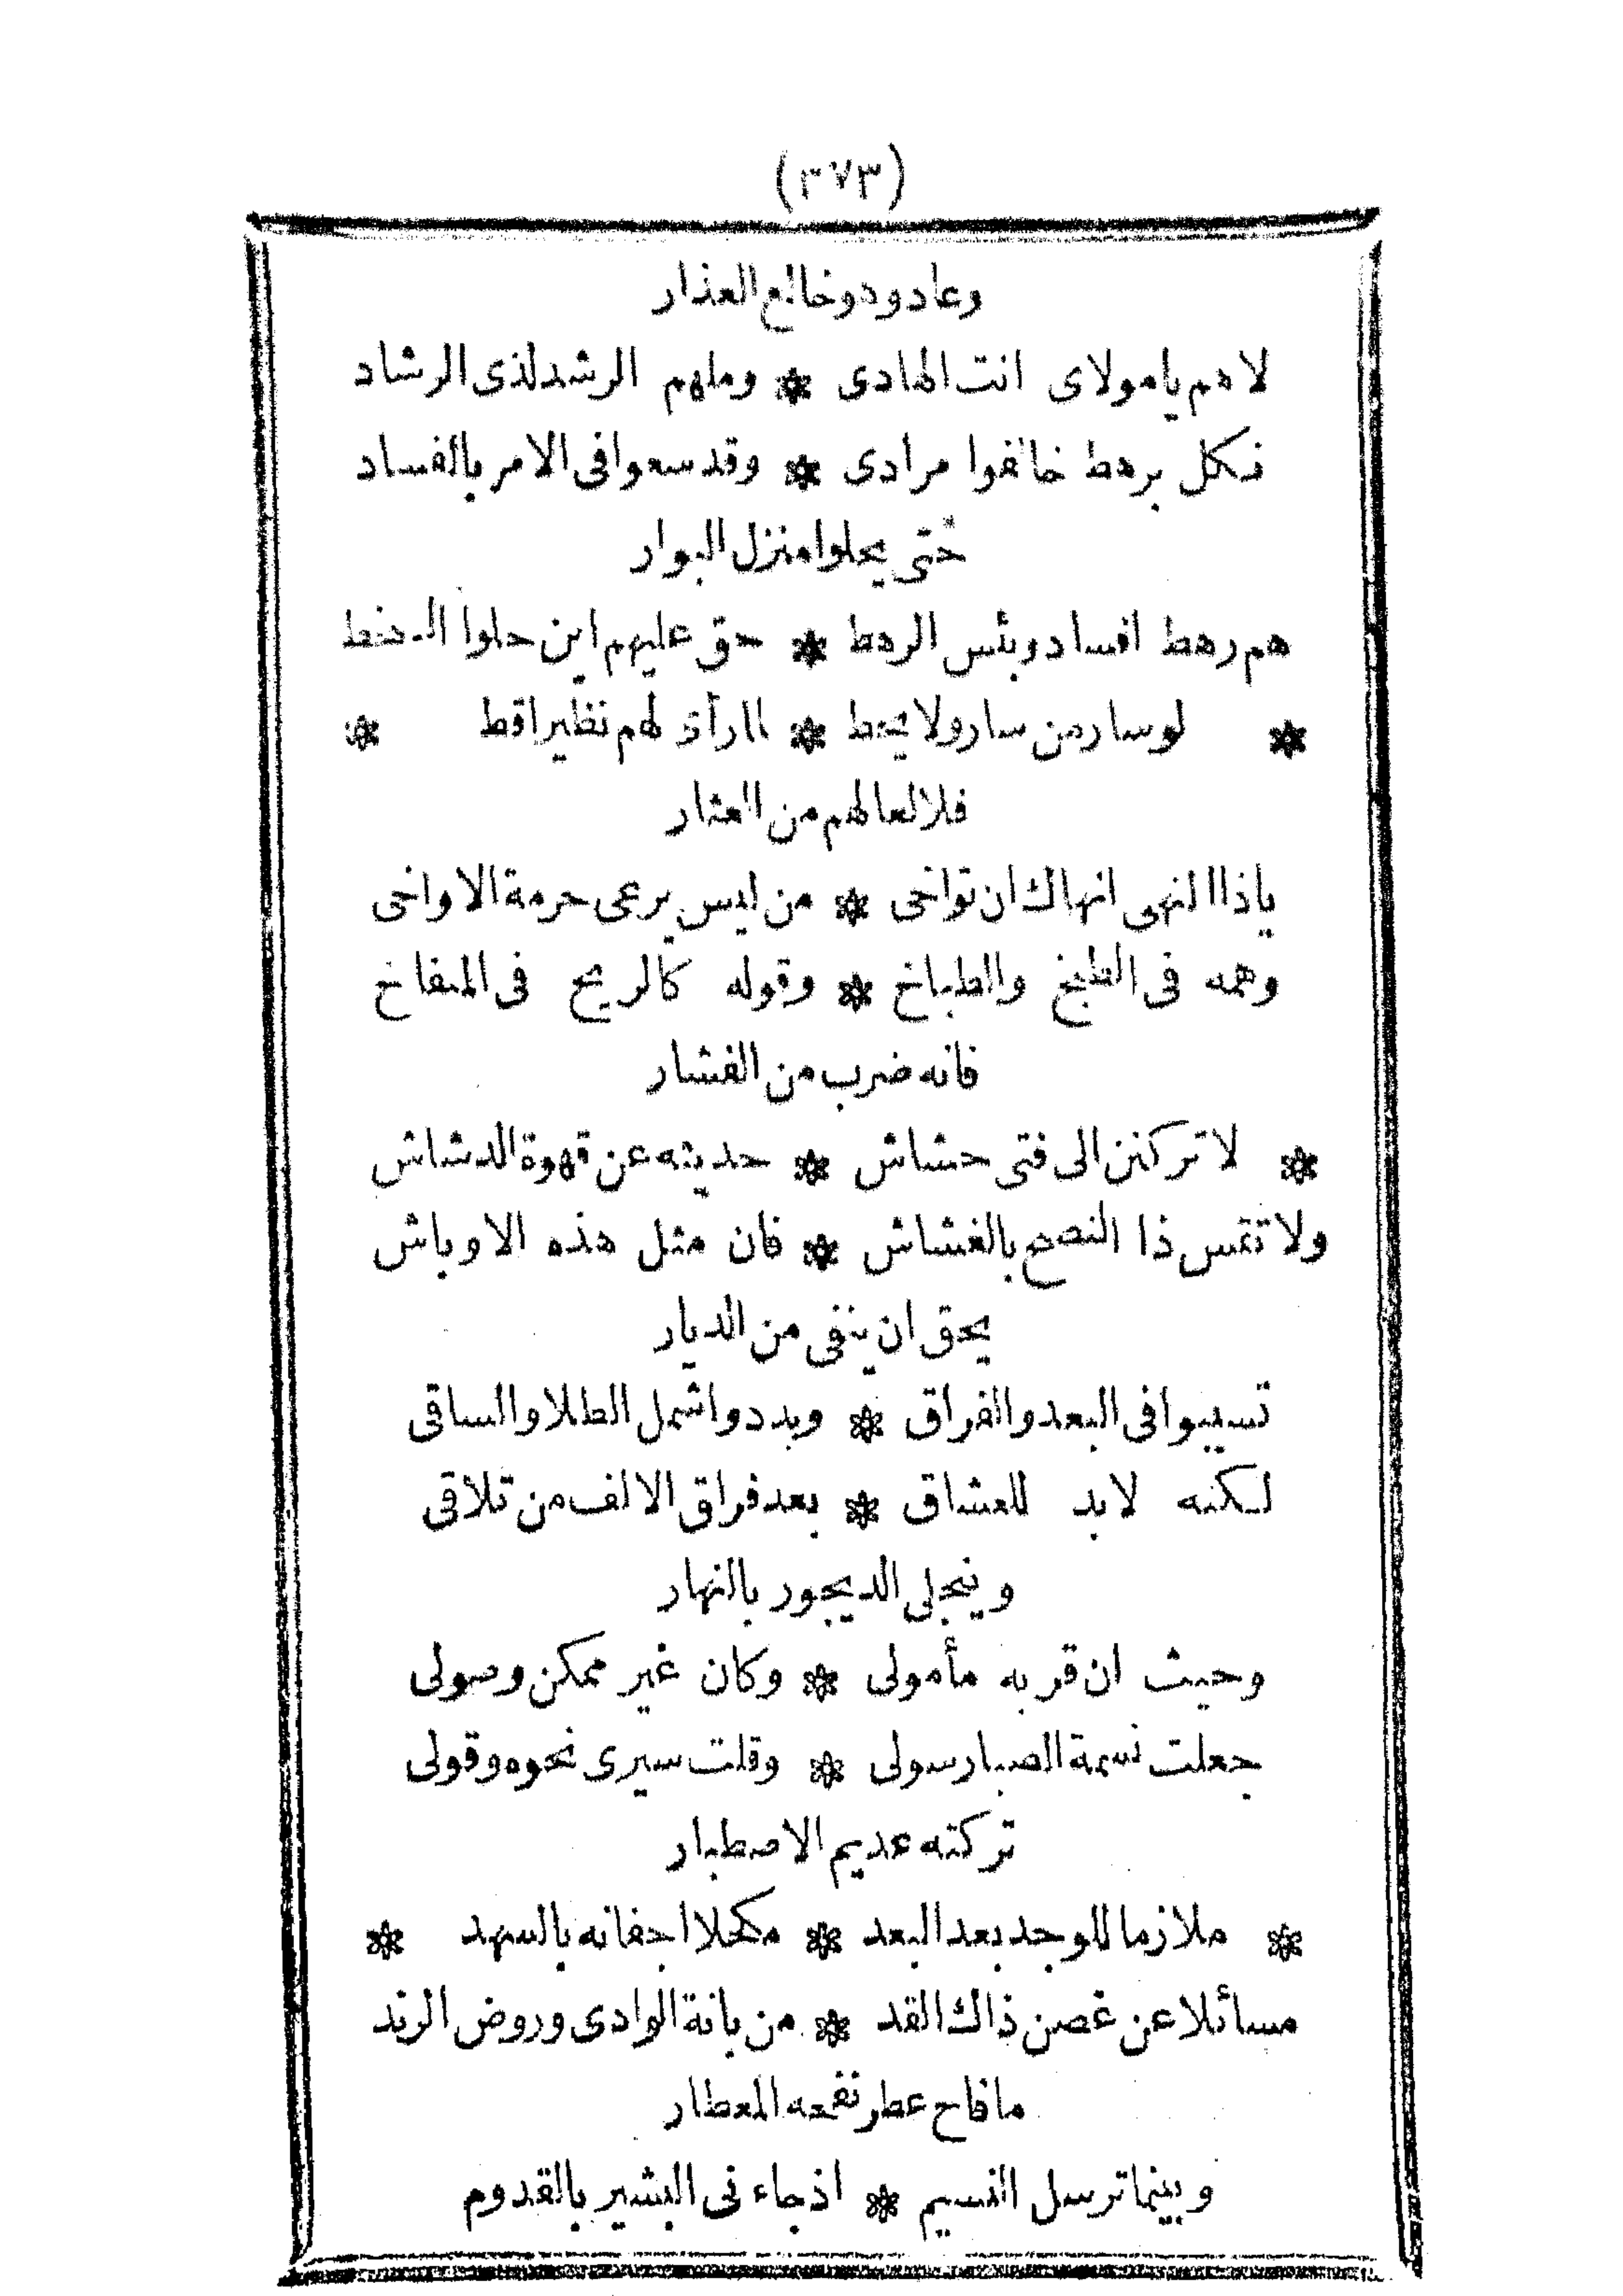 (٣٧٣)
وعاد وهو خالع العذار
لاهم يا مولاى انت الهادى * وملهم الرشد لذى الرشاد
نكل برهط خالفوا مرادى * وقد سعوا فى الامر بالفساد
حتى يحلوا منزل البوار
هم رهط افساد وبئس الرهط * حق عليهم اين حلوا السخط
* لو سار من سار ولا يخط * لما رأى لهم نظيرا قط *
فلا لعا لهم من العثار
يا ذا النهى انهاك ان تواخى * من ليس يرعى حرمة الاواخى
وهمه فى الطبخ والطباخ * وقوله كالريح فى المنفاخ
فانه ضرب من الفشار
* لا تركنن الى فتى حشاش * حديثه عن قهوة الدشاش
ولا تقس ذا النصح بالغشاش * فان مثل هذه الاوباش
يحق ان ينفى من الديار
تسببوا فى البعد والفراق * وبددوا شمل الطلا والساقى
لكنه لابد للعشاق * بعد فراق الالف من تلاقى
وينجلى الديجور بالنهار
وحيث ان قربه مأمولى * وكان غير ممكن وصولى
جعلت نسمة الصبا رسولى * وقلت سيرى نحوه وقولى
تركته عديم الاصطبار
* ملازما للوجد بعد البعد * مكحلا اجفانه بالسهد *
مسائلا عن غصن ذاك القد * من بانة الوادى وروض الرند
ما فاح عطر نفحه المعطار
وبينما ترسل النسيم * اذ جاءنى البشير بالقدوم